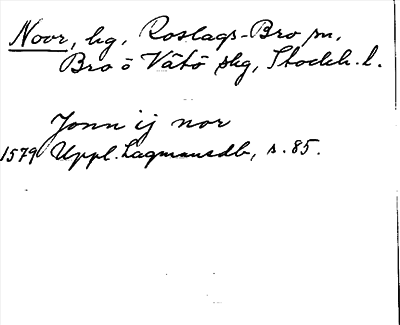 Noor, hg, Roslags-Bro sn,
Bro o Vätö skg, Stockh. l.
Jonn ij nor
1579 Uppl. Lagmansdb, s. 85.